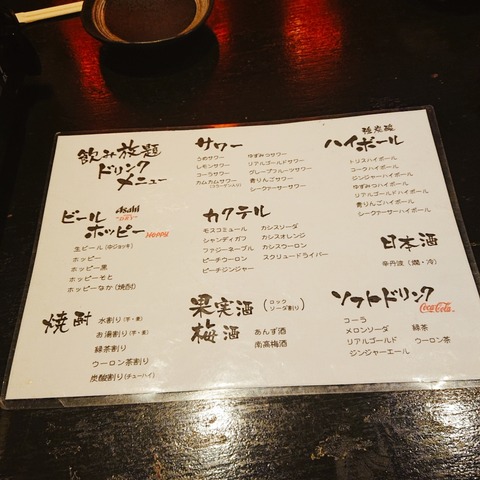 飲み放題
ドリンク
メニュー
サワー
うめサワー
レモンサワー
コーラサワー
カムカムサワー
(コラーゲン入り)
ゆずみつサワー
リアルゴールドサワー
グレープフルーツサワー
青りんごサワー
シークァーサーサワー
強炭酸
ハイボール
トリスハイボール
コークハイボール
ジンジャーハイボール
ゆずみつハイボール
リアルゴールドハイボール
青りんごハイボール
シークァーサーハイボール
ビール
Asahi
ホッピー
HOPPY
生ビール(中ジョッキ)
ホッピー
ホッピー黒
ホッピーそと
ホッピーなか(焼酎)
カクテル
モスコミュール
シャンディガフ
ファジーネーブル
ピーチウーロン
ピーチジンジャー
カシスソーダ
カシスオレンジ
カシスウーロン
スクリュードライバー
日本酒
辛丹波(燗・冷)
焼酎
水割り(芋・麦)
お湯割り(芋・麦)
緑茶割り
ウーロン茶割り
炭酸割り(チューハイ)
果実酒
梅酒
(ロック
ソーダ割り)
あんず酒
南高梅酒
ソフトドリンク
Coca-Cola
コーラ
メロンソーダ
リアルゴールド
ジンジャーエール
緑茶
ウーロン茶